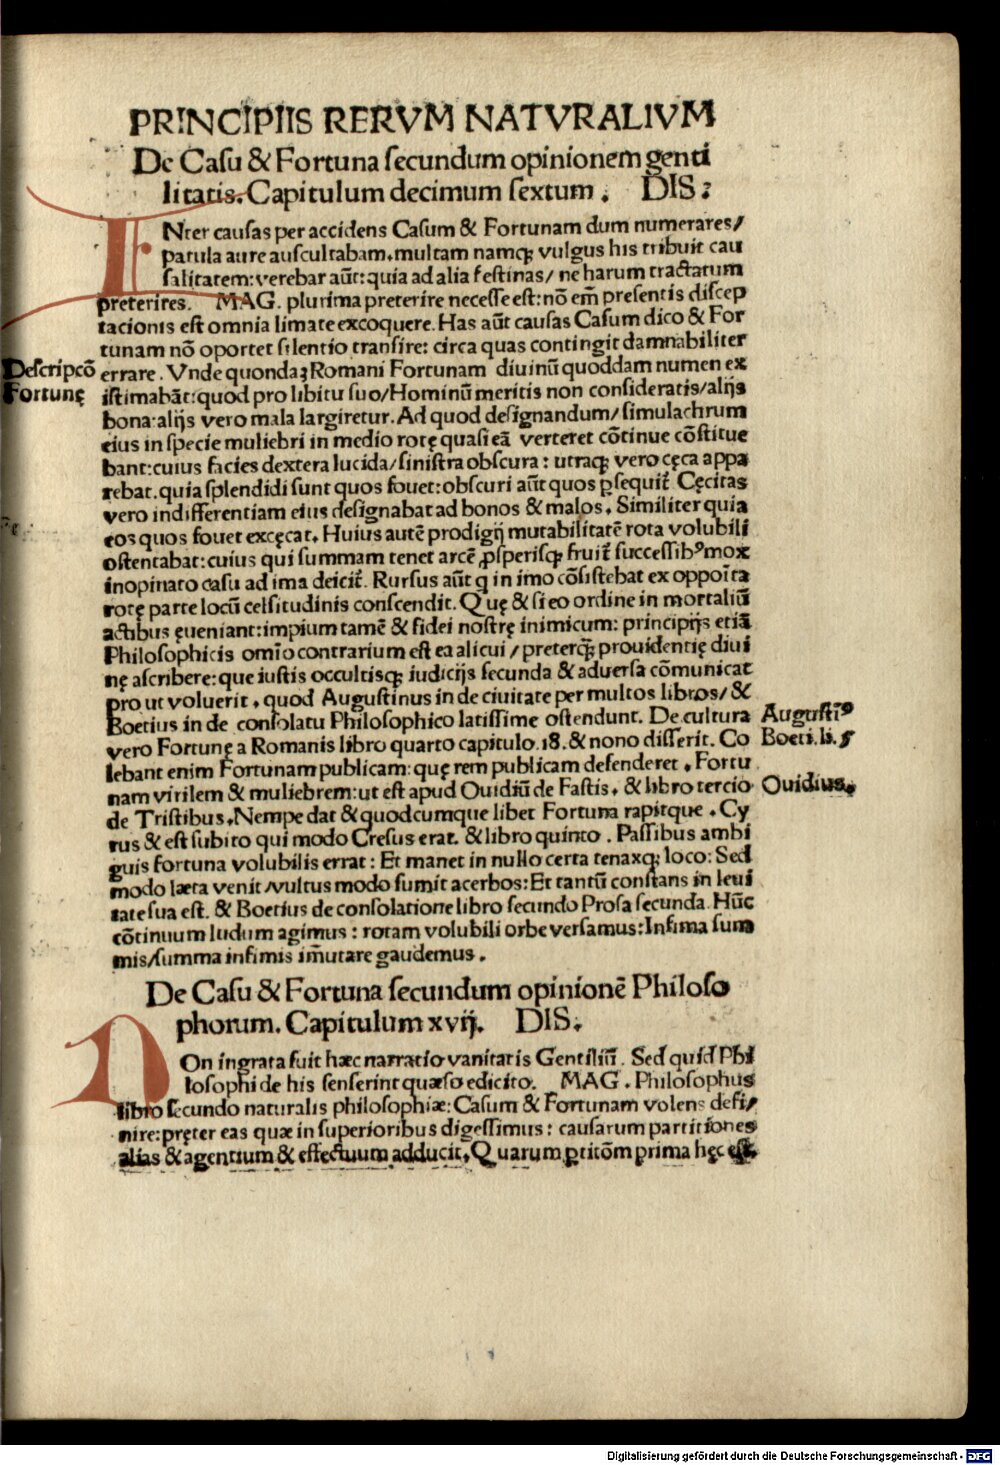 PRINCIPIIS RERVM NATVRALIVM
De Casu & Fortuna secundum opinionem genti
litatis. Capitulum decimum sextum. DIS:
INter causas per accidens Casum & Fortunam dum numerares/
patula aure auscultabam. multam namqꝫ vulgus his tribuit cau
salitatem: verebar aūt: quia ad alia festinas/ ne harum tractatum
preterires. MAG. plurima preterire necesse est: nō em̄ presentis discep
tacionis est omnia limate excoquere. Has aūt causas Casum dico & For
tunam nō oportet silentio transire: circa quas contingit damnabiliter
Descripcō
errare. Vnde quondaꝫ Romani Fortunam diuinū quoddam numen ex
Fortunę
istimabāt: quod pro libitu suo/ Hominū meritis non consideratis/ alijs
bona: alijs vero mala largiretur. Ad quod designandum/ simulachrum
eius in specie muliebri in medio rotę quasi eā verteret cōtinue cōstitue
bant: cuius facies dextera lucida/ sinistra obscura: utraqꝫ vero cęca appa
rebat. quia splendidi sunt quos fouet: obscuri aūt quos ꝑsequit̄ Cęcitas
vero indifferentiam eius designabat ad bonos & malos. Similiter quia
eos quos fouet excęcat. Huius autē prodigij mutabilitatē rota volubili
ostentabat: cuius qui summam tenet arcē ꝓsperisqꝫ fruit̄ successibꝰ mox
inopinato casu ad ima deicit̄. Rursus aūt q in imo cōsistebat ex oppoīta
rotę parte locū celsitudinis conscendit. Quę & si eo ordine in mortaliū
actibus ęueniant: impium tamē & fidei nostrę inimicum: principijs etiā
Philosophicis omīo contrarium est ea alicui/ preterqꝫ prouidentię diui
nę ascribere: que iustis occultisqꝫ iudicijs secunda & aduersa cōmunicat
pro ut voluerit. quod Augustinus in de ciuitate per multos libros/ &
Boetius in de consolatu Philosophico latissime ostendunt. De cultura
Augustīꝰ
vero Fortunę a Romanis libro quarto capitulo. 18. & nono disserit. Co
Boeti. li. 5
lebant enim Fortunam publicam: quę rem publicam defenderet. Fortu
nam virilem & muliebrem: ut est apud Ouidiū de Fastis. & libro tercio
Ouidius.
de Tristibus. Nempe dat & quodcumque libet Fortuna rapitque. Cy
rus & est subito qui modo Cresus erat. & libro quinto. Passibus ambi
guis fortuna volubilis errat: Et manet in nullo certa tenaxqꝫ loco: Sed
modo læta venit/ vultus modo sumit acerbos: Et tantū constans in leui
tate sua est. & Boetius de consolatione libro secundo Prosa secunda. Hūc
cōtinuum ludum agimus: rotam volubili orbe versamus: Infima sum
mis/ summa infimis im̄utare gaudemus.
De Casu & Fortuna secundum opinionē Philoso
phorum. Capitulum xvij. DIS.
NOn ingrata fuit hæc narratio vanitatis Gentiliū. Sed quid Phi
losophi de his senserint quæso edicito. MAG. Philosophus
libro secundo naturalis philosophiæ: Casum & Fortunam volens defi/
nire: pręter eas quæ in superioribus digessimus: causarum partitiones
alias & agentium & effectuum adducit. Quarum ꝑtitōm prima hęc est.
Digitalisierung gefördert durch die Deutsche Forschungsgemeinschaft - DFG